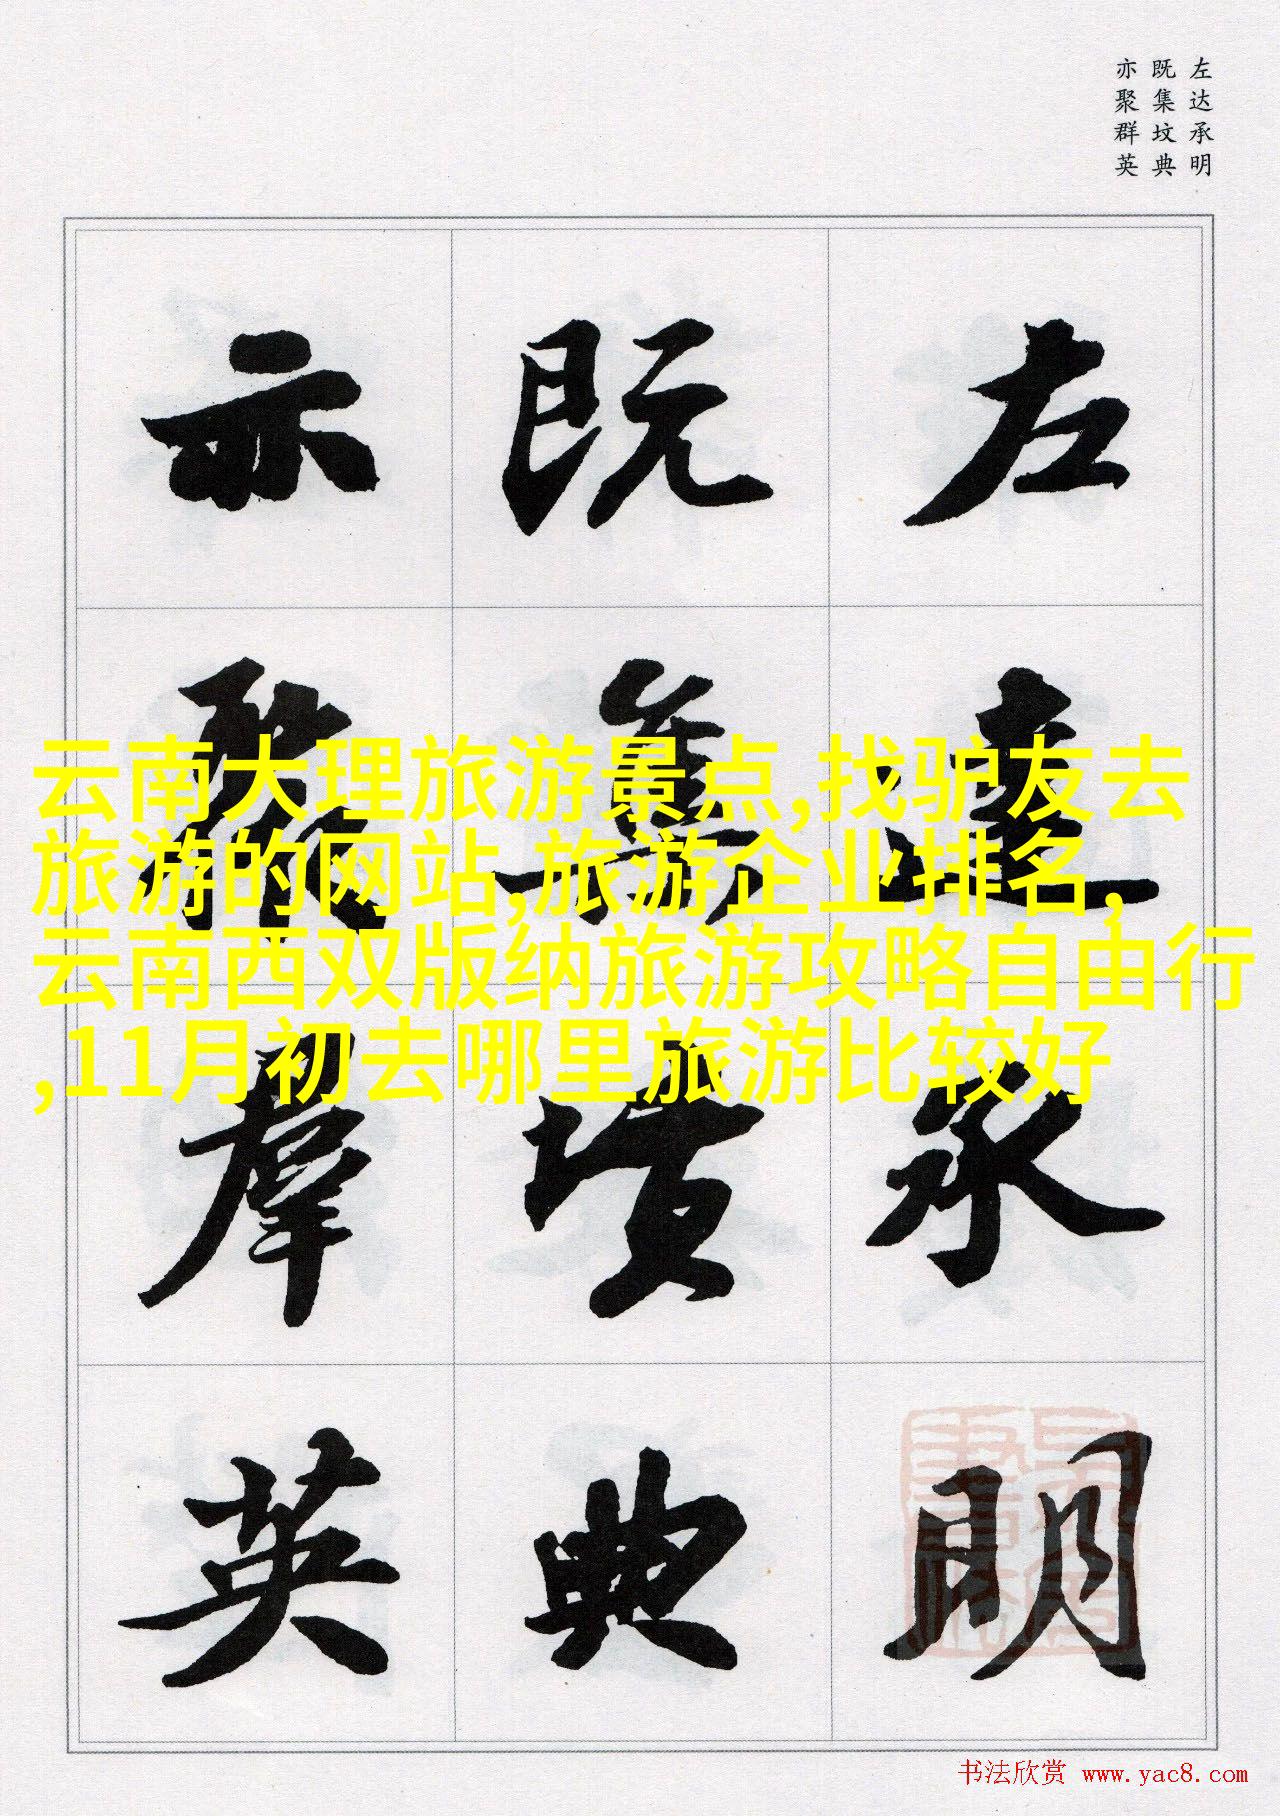 左达承明
既集坟典
亦聚群英
左達承明
既集墳典
亦聚羣英
云南大理旅游景点,找驴友去
旅游的网站,旅游企业排名,
云南西双版纳旅游攻略自由行
,11月初去哪里旅游比较好
书法欣赏 www.yac8.com